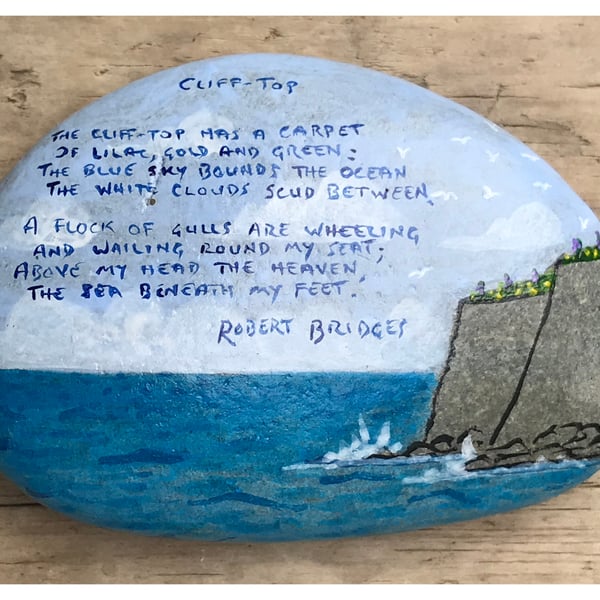 CLIFF-TOP
THE CLIFF-TOP HAS A CARPET
OF LILAC, GOLD AND GREEN:
THE BLUE SKY BOUNDS THE OCEAN
THE WHITE CLOUDS SCUD BETWEEN.
A FLOCK OF GULLS ARE WHEELING
AND WAILING ROUND MY SEAT;
ABOVE MY HEAD THE HEAVEN,
THE SEA BENEATH MY FEET.
ROBERT BRIDGES